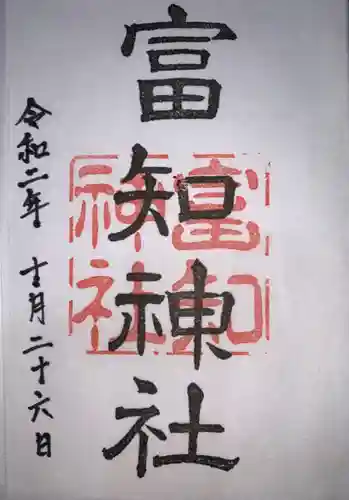 富知神社
富知
神社
令和二年 十二月二十六日